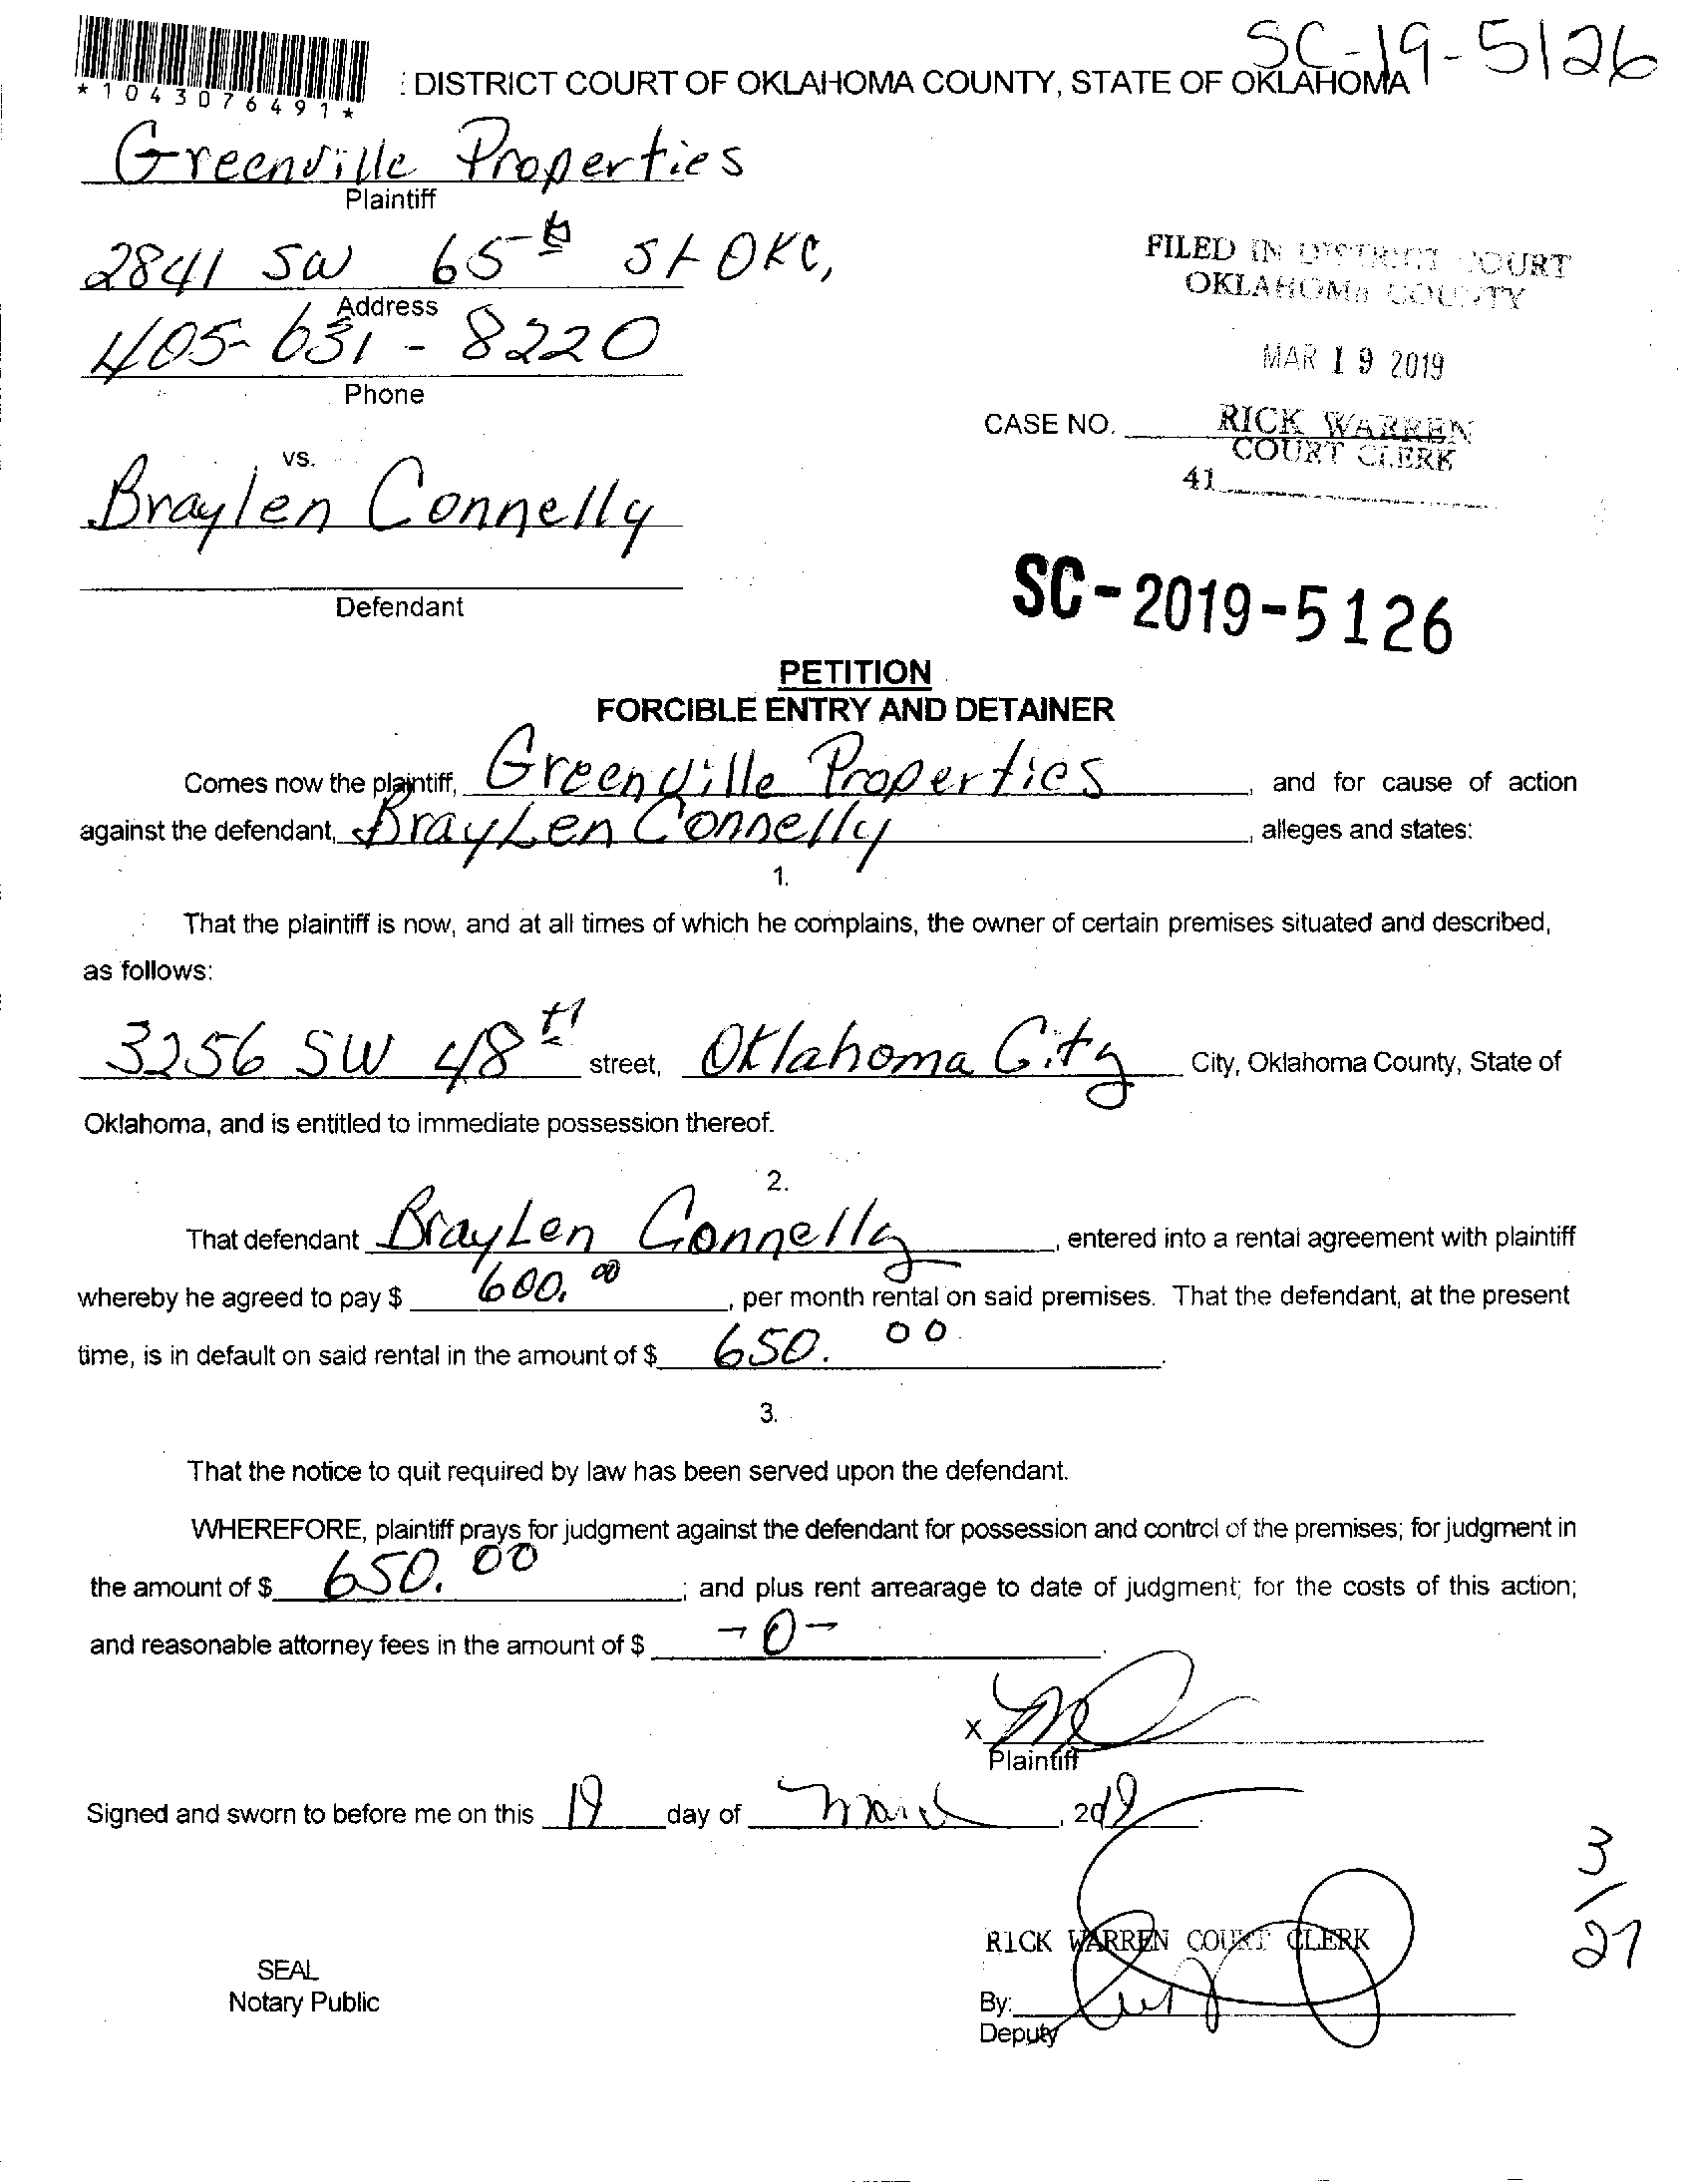 SC-19-5126
*1043076491*
: DISTRICT COURT OF OKLAHOMA COUNTY, STATE OF OKLAHOMA
Greenville Properties
Plaintiff
2841 SW 65th St OKC,
Address
405-631-8220
Phone
FILED IN DISTRICT COURT
OKLAHOMA COUNTY
MAR 19 2019
CASE NO.
RICK WARREN
COURT CLERK
41
vs.
Braylen Connelly
Defendant
SC-2019-5126
PETITION
FORCIBLE ENTRY AND DETAINER
Comes now the plaintiff, Greenville Properties, and for cause of action
against the defendant, BrayLen Connelly, alleges and states:
1.
That the plaintiff is now, and at all times of which he complains, the owner of certain premises situated and described,
as follows:
3256 SW 48th street, Oklahoma City City, Oklahoma County, State of
Oklahoma, and is entitled to immediate possession thereof.
2.
That defendant BrayLen Connelly, entered into a rental agreement with plaintiff
whereby he agreed to pay $ 600.00, per month rental on said premises. That the defendant, at the present
time, is in default on said rental in the amount of $ 650.00.
3.
That the notice to quit required by law has been served upon the defendant.
WHEREFORE, plaintiff prays for judgment against the defendant for possession and control of the premises; for judgment in
the amount of $ 650.00; and plus rent arrearage to date of judgment; for the costs of this action;
and reasonable attorney fees in the amount of $ -0-.
X
Plaintiff
Signed and sworn to before me on this 19 day of March, 2019.
3/27
RICK WARREN COURT CLERK
SEAL
Notary Public
By:
Deputy